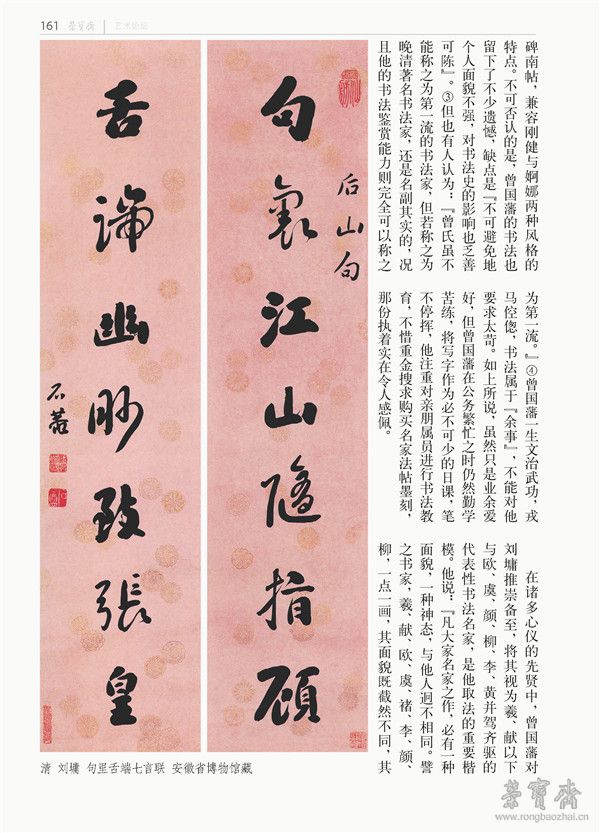 161 荣宝斋 艺术论坛
碑南帖，兼容刚健与婀娜两种风格的
特点。不可否认的是，曾国藩的书法也
留下了不少遗憾，缺点是『不可避免地
个人面貌不强，对书法史的影响也乏善
可陈』。③但也有人认为：『曾氏虽不
能称之为第一流的书法家，但若称之为
晚清著名书法家，还是名副其实的，况
且他的书法鉴赏能力则完全可以称之
为第一流。』④曾国藩一生文治武功，戎
马倥偬，书法属于『余事』，不能对他
要求太苛。如上所说，虽然只是业余爱
好，但曾国藩在公务繁忙之时仍然勤学
苦练，将写字作为必不可少的日课，笔
不停挥，他注重对亲朋属员进行书法教
育，不惜重金搜求购买名家法帖墨刻，
那份执着实在令人感佩。
在诸多心仪的先贤中，曾国藩对
刘墉推崇备至，将其视为羲、献以下
与欧、虞、颜、柳、李、黄并驾齐驱的
代表性书法名家，是他取法的重要楷
模。他说：『凡大家名家之作，必有一种
面貌，一种神态，与他人迥不相同。譬
之书家，羲、献、欧、虞、褚、李、颜、
柳，一点一画，其面貌既截然不同，其
后山句
句裏江山隨指顧
舌端幽眇致張皇
石菴
清 刘墉 句里舌端七言联 安徽省博物馆藏
荣宝斋
www.rongbaozhai.cn